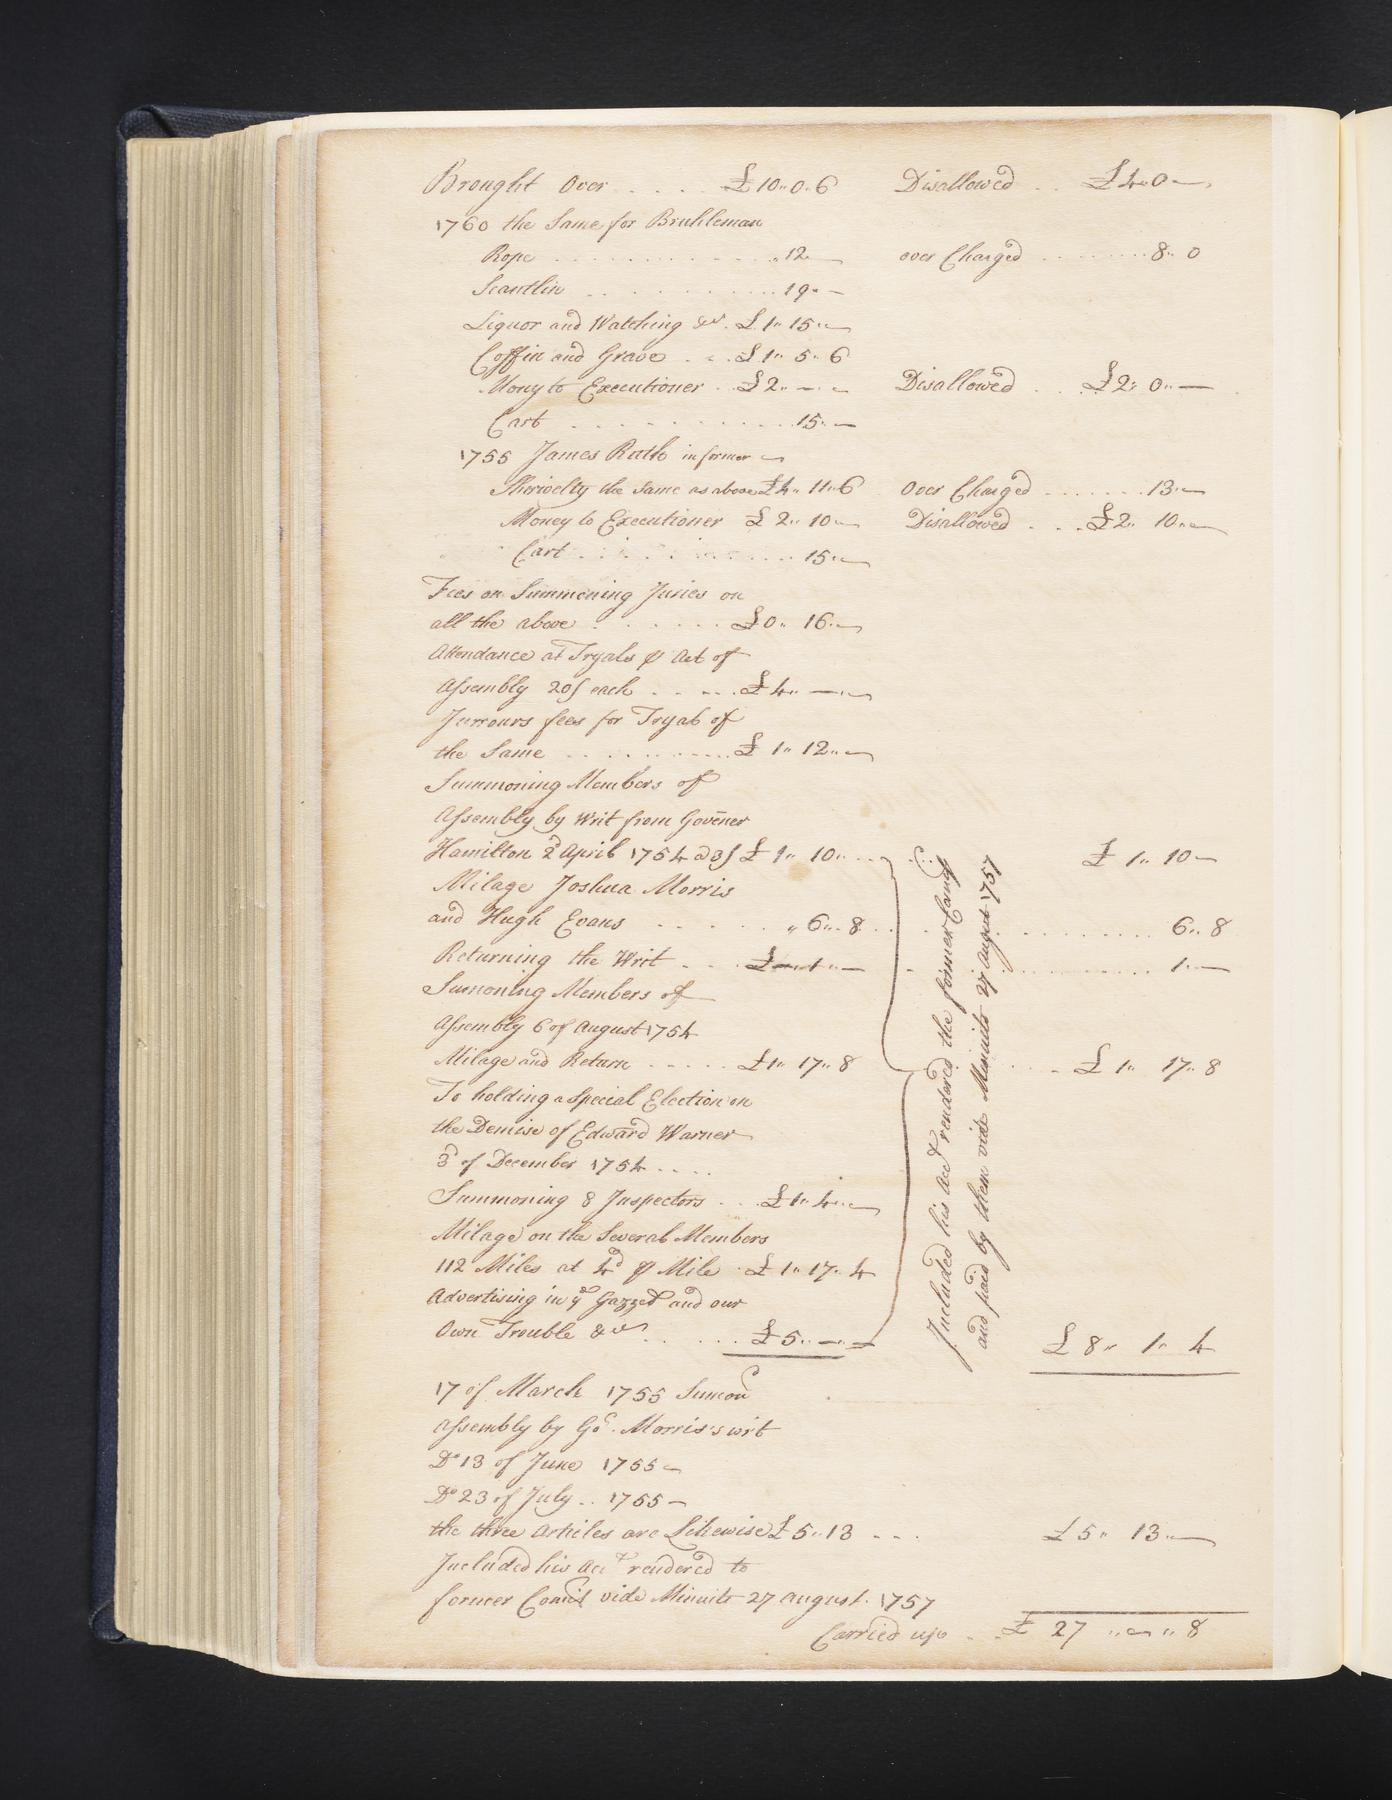 Brought Over .... £10..0..6 Disallowed .. £4..0—
1760 the Same for Bruhleman
Rope ........ „12— over Charged ....... 8..0
Scantlin ........ 19..—
Liquor and Watching &c. £1..15..—
Coffin and Grave ... £1..5..6
Mony to Executioner .. £2..—..— Disallowed ... £2..0..—
Cart ........ 15..—
1755 James Ruth in former
Sherivelty the Same as above £4..11..6 Over Charged ....... 13..—
Money to Executioner £2..10..— Disallowed ... £2..10..—
Cart ........ 15..—
Fees on Summoning Juries on
all the above ...... £0..16..—
Attendance at Tryals ⅌ Act of
Assembly 20s each ..... £4..—..—
Jurrours fees for Tryals of
the Same ........ £1..12..—
Summoning Members of
Assembly by Writ from Govener
Hamilton 2d April 1754 @3s £1..10.. ... £1..10—
Milage Joshua Morris
and Hugh Evans ...... „6..8 ........ 6..8
Returning the Writ ... £—..1..— ........ 1..—
Sumoning Members of
Assembly 6 of August 1754
Milage and Return ..... £1..17..8 .... £1..17..8
To holding a Special Election on
the Demise of Edward Warner
3d of December 1754 ....
Summoning 8 Inspectors ... £1..4..—
Milage on the Several Members
112 Miles at 4d ⅌ Mile . £1..17..4
Advertising in ye Gazzet and our
Own Trouble &c ...... £5..—..— £8..1..4
Included his acct rendered the former
and paid by them vide Minuits 27 August 1757
17 of March 1755 Sumon
Assembly by Go. Morris's writ
Do 13 of June 1755 —
Do 23 of July .. 1755 —
the three Articles are Likewise £5..13 ... £5..13..—
Included his Acct rendered to
former vide Minuits 27 August. 1757
Carried up .. £27..—..8